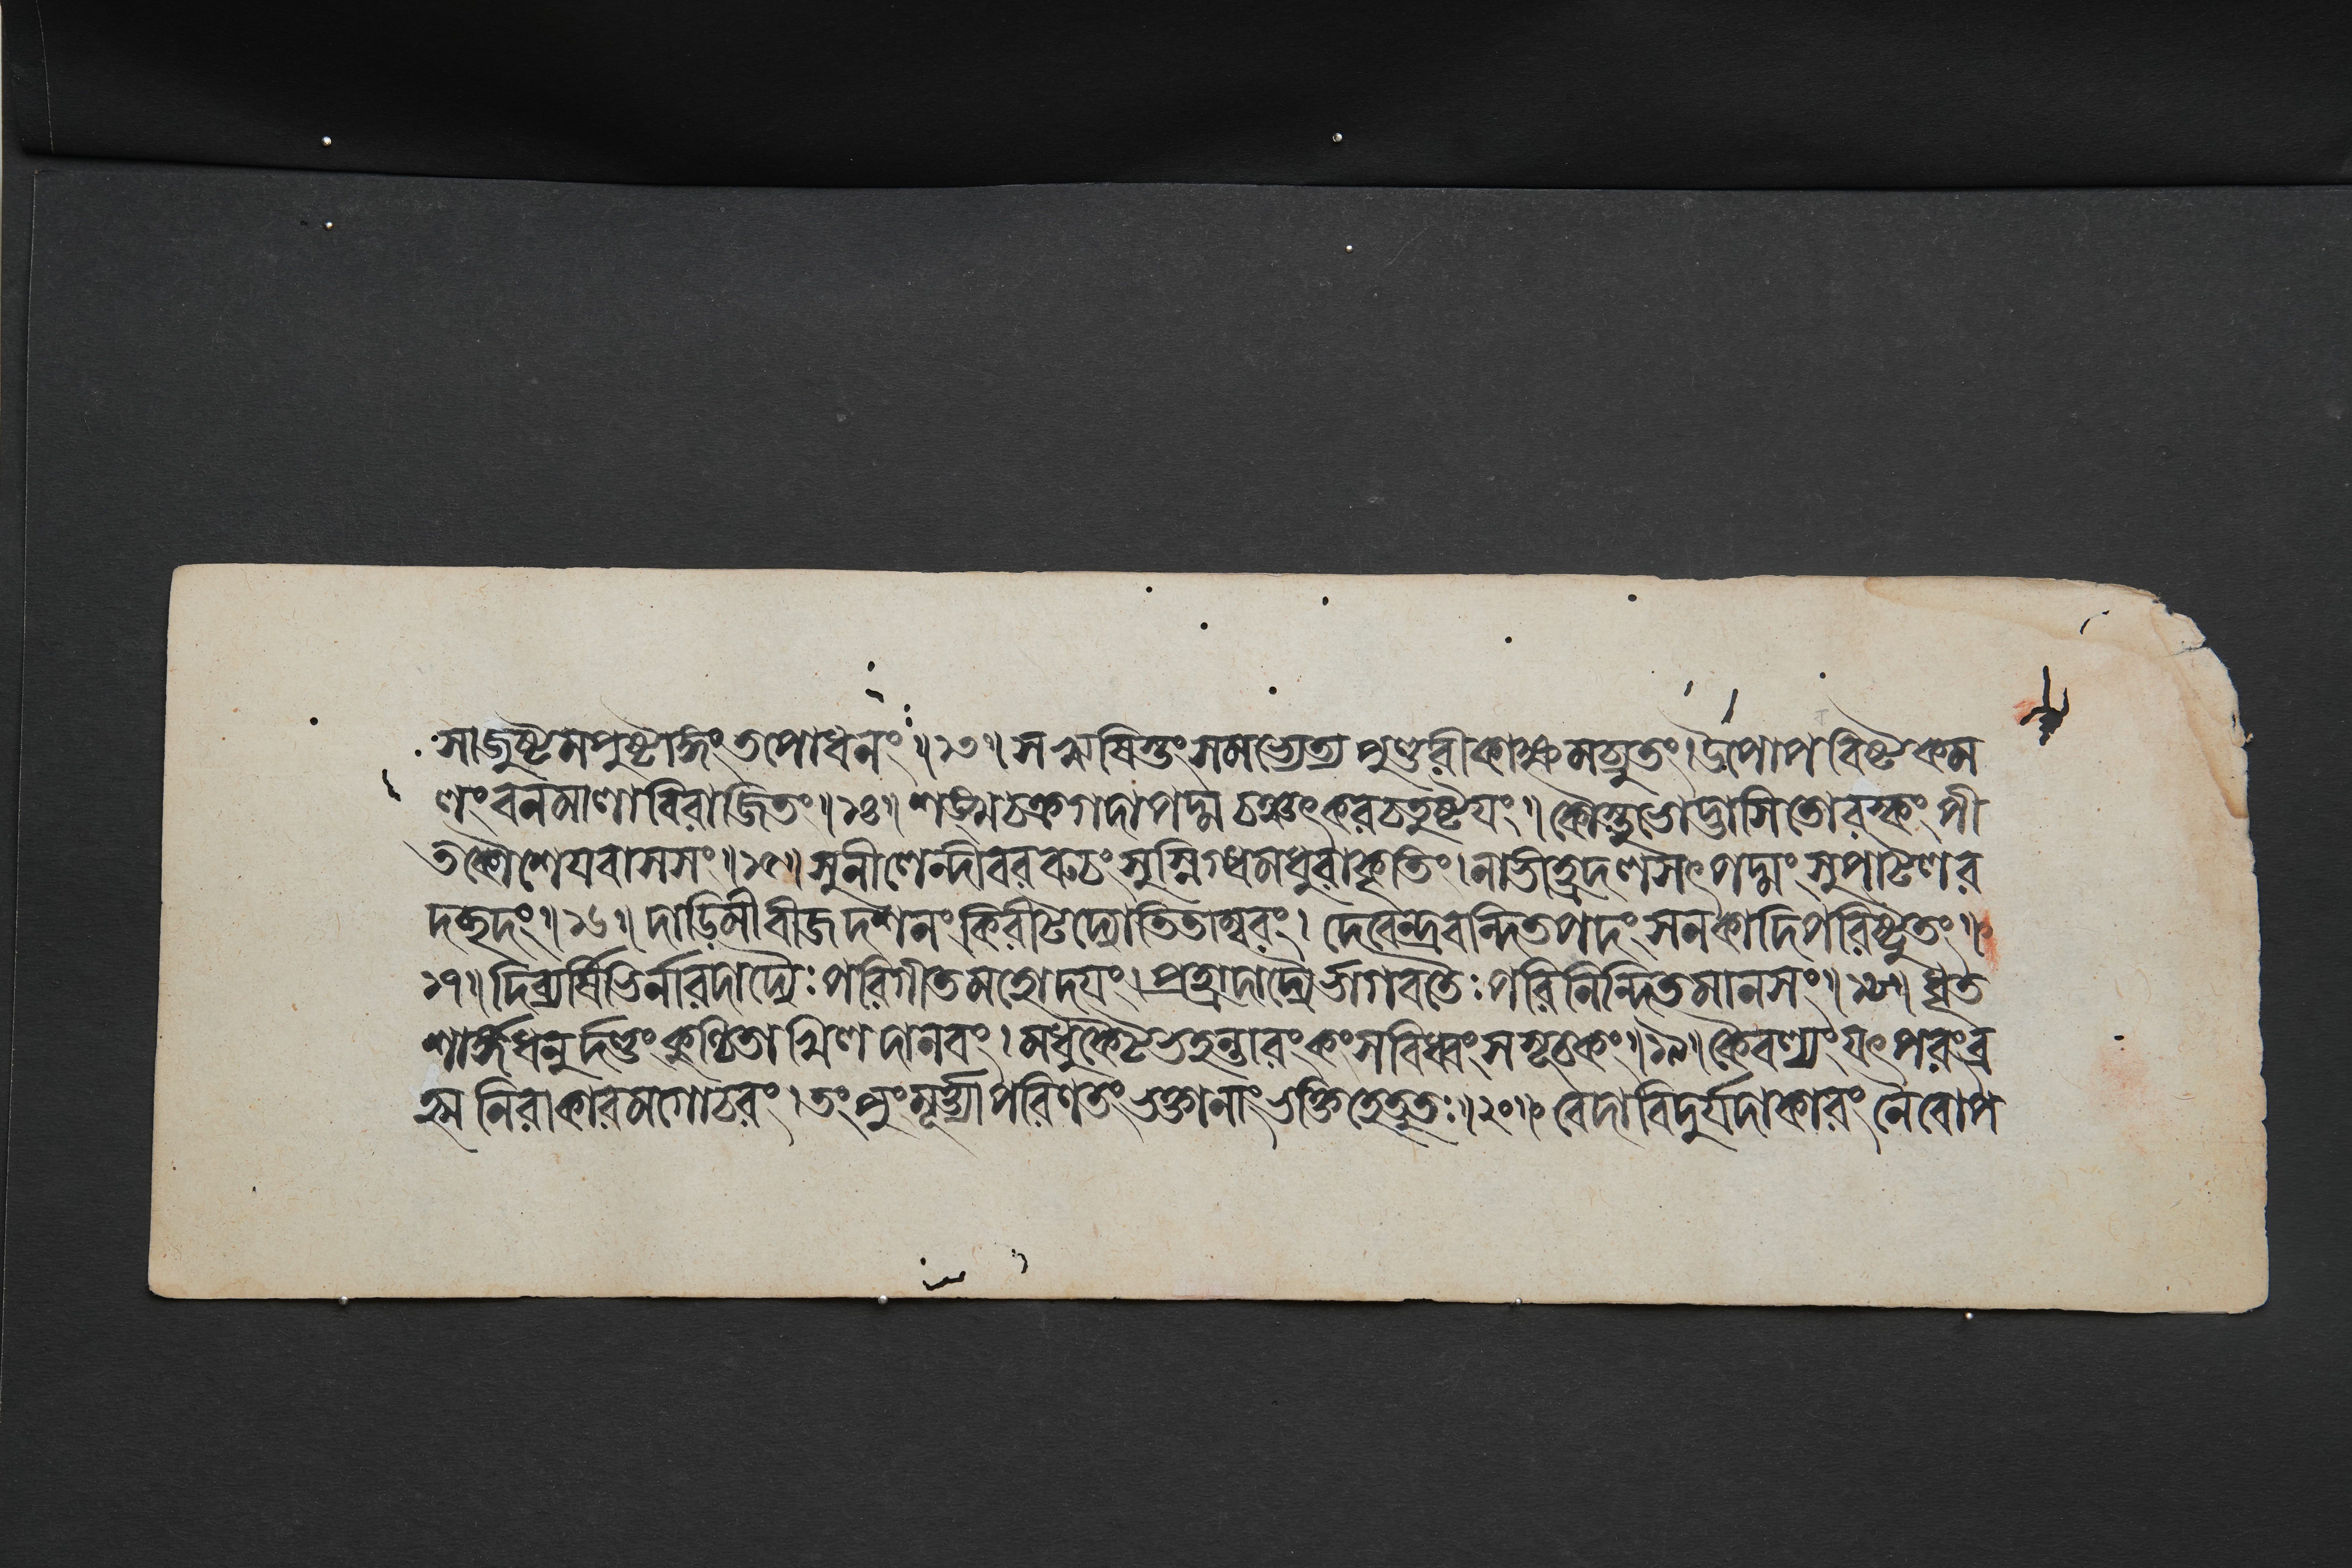 সাজুষ্টমপুষ্টাঙ্গং তপোধনং ॥১৩॥ স ঋষিস্তং সমভ্যেত্য পুণ্ডরীকাক্ষমচ্যুতং। উপোপবিষ্টকম
লং বনমালাবিরাজিতং ॥১৪॥ শঙ্খচক্রগদাপদ্মচঞ্চৎকরচতুষ্টযং॥ কৌস্তুভোদ্ভাসিতোরস্কং পী
তকৌশেযবাসসং ॥১৫॥ সুনীলেন্দীবররুচং সুস্নিগ্ধমধুরাকৃতিং। নাভীহ্রদলসৎপদ্মং সুপাটলর
দচ্ছদং ॥১৬॥ দাডিমীবীজদশনং কিরীটদ্যোতিতাম্বরং। দেবেন্দ্রবন্দিতপদং সনকাদিপরিষ্টুতং॥
১৭॥ দিব্যর্ষিভির্নারদাদ্যৈঃ পরিগীতমহোদযং। প্রহ্লাদাদ্যৈর্ভাগবতৈঃ পরিনিন্দিতমানসং ॥১৮॥ ধৃত
শার্ঙ্গধনুর্দণ্ডং কুণ্ঠিতাখিলদানবং। মধুকৈটভহন্তারং কংসবিধ্বংসসূচকং ॥১৯॥ কৈবল্যং যৎ পরং ব্র
হ্ম নিরাকারমগোচরং। তং পুংমূর্ত্ত্যা পরিণতং ভক্তানাং ভক্তিহেতুতঃ ॥২০॥ বেদা বিদুর্যদাকারং নৈবোপ